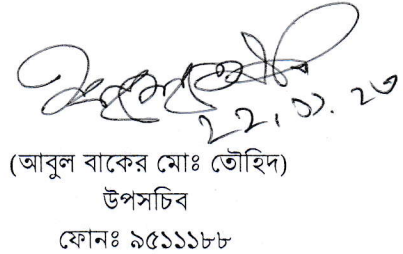 ২২.১১.২৩
(আবুল বাকের মোঃ তৌহিদ)
উপসচিব
ফোনঃ ৯৫১১১৮৮